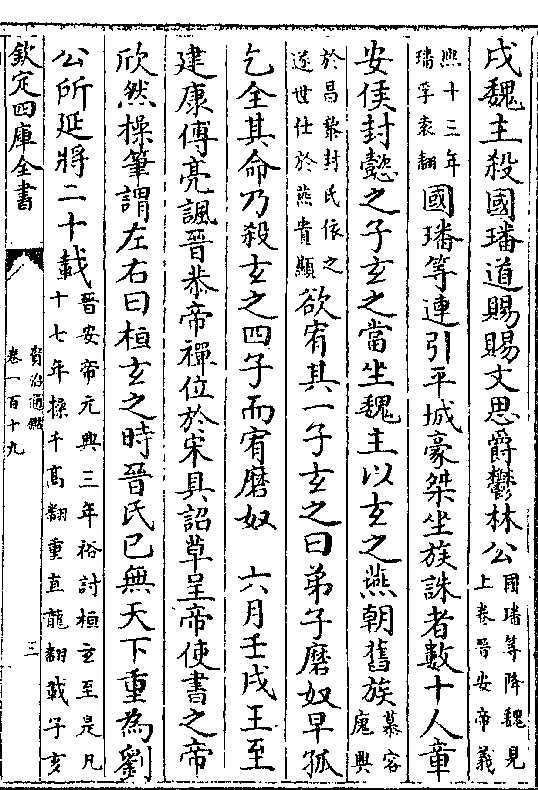 戌魏主殺國璠道賜賜文思爵鬱林公國璠等降魏見上卷晉安帝義
熙十三年璠孚袁翻國璠等連引平城豪桀坐族誅者數十人章
安侯封懿之子玄之當坐魏主以玄之燕朝舊族慕容廆興
於昌黎封氏依之遂世仕於燕貴顯欲宥其一子玄之曰弟子磨奴早孤
乞全其命乃殺玄之四子而宥磨奴　六月壬戌王至
建康傅亮諷晉恭帝禪位於宋具詔草呈帝使書之帝
欣然操筆謂左右曰桓玄之時晉氏已無天下重為劉
公所延將二十載晉安帝元興三年裕討桓玄至是凡十七年操千高翻重直龍翻載子亥
欽定四庫全書
資治通鑑
卷一百十九
三